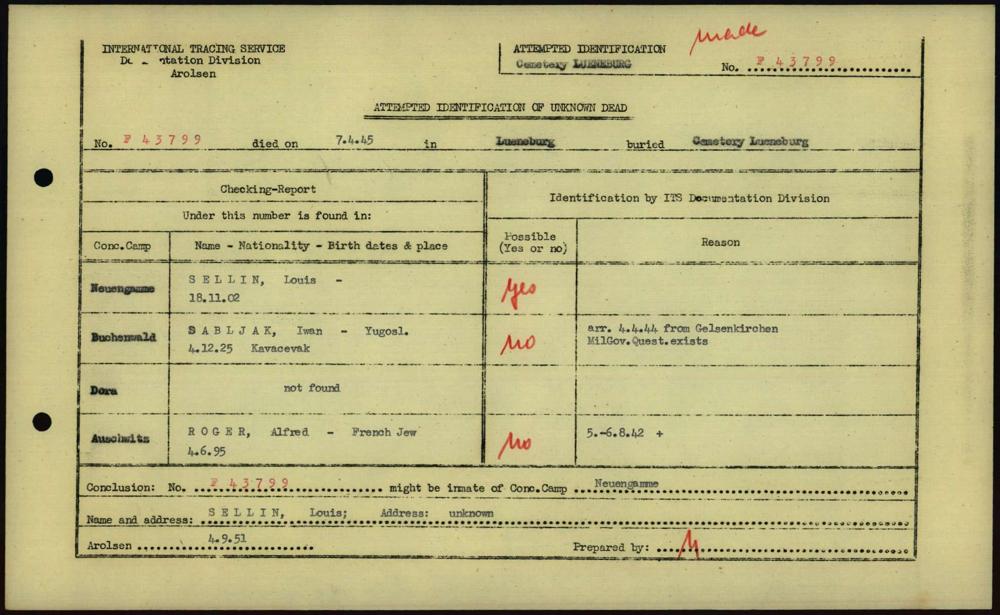 made
INTERNATIONAL TRACING SERVICE
Documentation Division
Arolsen
ATTEMPTED IDENTIFICATION
Cemetery LUENEBURG
No. F 43799
ATTEMPTED IDENTIFICATION OF UNKNOWN DEAD
No. F 43799 died on 7.4.45 in Lueneburg buried Cemetery Lueneburg
Checking-Report
Under this number is found in:
Identification by ITS Documentation Division
Conc.Camp Name - Nationality - Birth dates & place Possible (Yes or no) Reason
Neuengamme SELLIN, Louis - yes
18.11.02
Buchenwald SABLJAK, Iwan - Yugosl. no arr. 4.4.44 from Gelsenkirchen
4.12.25 Kavacevak MilGov.Quest.exists
Dora not found
Auschwitz ROGER, Alfred - French Jew no 5.-6.8.42 +
4.6.95
Conclusion: No. F 43799 might be inmate of Conc.Camp Neuengamme
Name and address: SELLIN, Louis; Address: unknown
Arolsen 4.9.51 Prepared by: